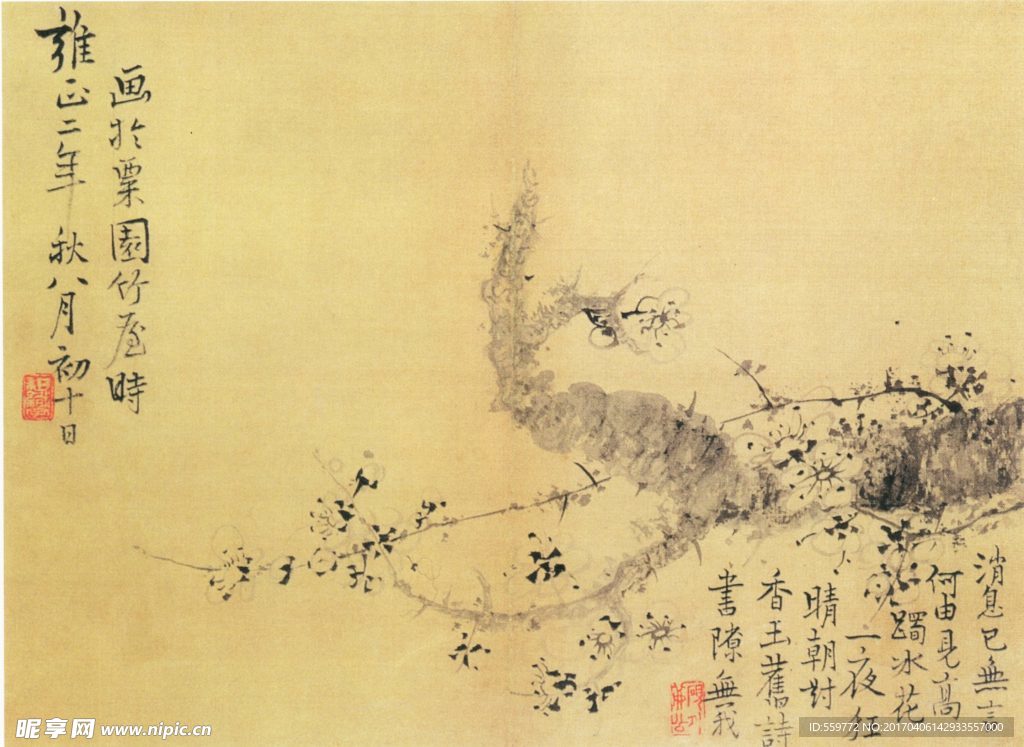 消息已無言
何由見高
躅冰花
一夜紅
晴朝對
香玉舊詩
書隙無我
画於栗園竹屋時
雍正二年秋八月初十日
昵享网 www.nipic.cn
ID:559772 NO:20170406142933557000